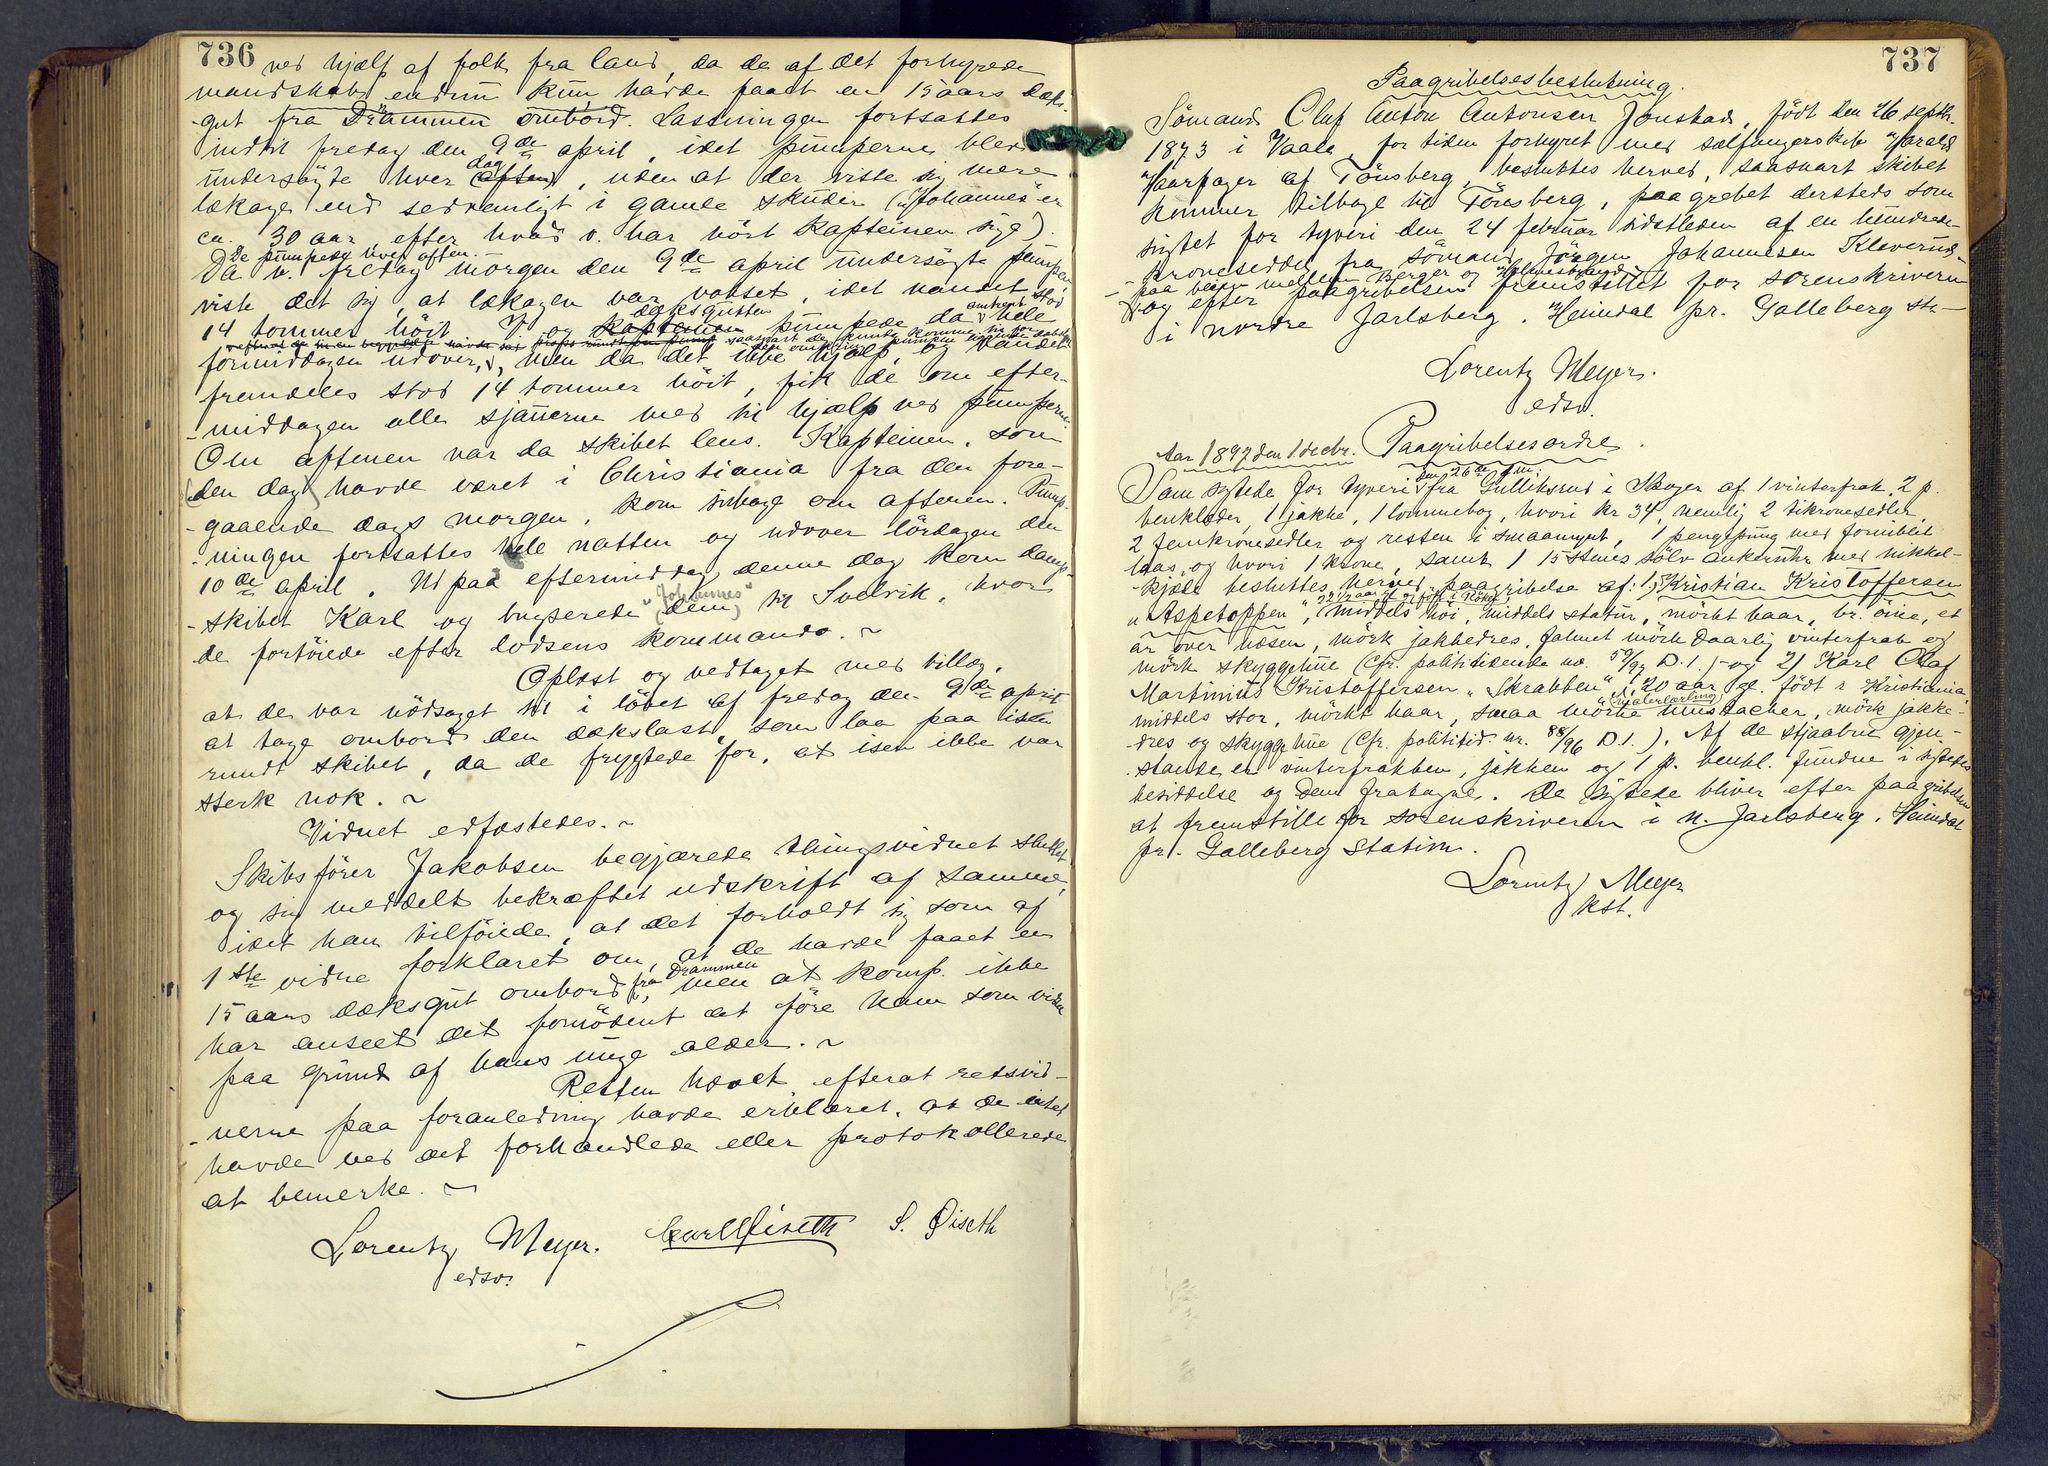 736
ved hjælp af folk fra land, da de af det forhyrede
mandskab endnu kun havde faaet en 15 aars dæks-
gut fra Drammen ombord. Lastningen fortsattes
indtil fredag den 9de april, idet pumperne blev
undersøgte hver dag aften, uden at der viste sig mere
lækage end sedvanligt i gamle skuder ("Johannes" er
ca. 30 aar, efter hvad v. har hört kapteinen sige).
De pumpede hver aften.
Da v. fredag morgen den 9de april undersögte pumpen
viste det sig, at lækagen var vokset, idet vandet stod
14 tommer höit. V. og dæksgutten kapteinen pumpede da omtrent hele
formiddagen udover, men da det ikke hjalp, og vandet
fremdeles stod 14 tommer höit, fik de om efter-
-middagen alle sjauerne med til hjælp ved pumperne.
Om aftenen var da skibet lens. Kapteinen, som
(den dag) havde været i Christiania fra den fore-
-gaaende dags morgen, kom tilbage om aftenen. Pump-
-ningen fortsattes hele natten og udover lördagen den
10de april. Ud paa eftermiddag denne dag kom damp-
-skibet Karl og bugserede "Johannes" (dem) til Svelvik, hvor
de fortöiede efter lodsens kommando. ~
Oplæst og vedtaget med tillæg,
at de var nödsaget til i löbet af fredag den 9de april
at tage ombord den dækslast, som laa paa isen
rundt skibet, da de frygtede for, at isen ikke var
sterk nok. ~
Vidnet edfæstedes. ~
Skibsförer Jakobsen begjærede thingsvidnet sluttet
og sig meddelt bekræftet udskrift af samme,
idet han tilföiede, at det forholdt sig som af
1ste vidne forklaret om, at de havde faaet en
15 aars dæksgut ombord fra Drammen, men at komp. ikke
har anseet det fornödent at före ham som vidne
paa grund af hans unge alder. ~
Retten hævet efterat retsvid-
-nerne paa foranledning havde erklæret, at de intet
havde ved det forhandlede eller protokollerede
at bemerke. ~
Lorentz Meyer. Carl Öiseth S. Öiseth
edsv.
737
Paagribelsesbeslutning.
Sömand Oluf Anton Antonsen Jonstad, födt den 26 septbr.
1873 i Vaale, for tiden forhyret med sælfangerskib "Harald
Haarfager" af Tönsberg, besluttes herved, saasnart skibet
kommer tilbage til Tönsberg, paagrebet dersteds som
sigtet for tyveri den 24 februar sidstleden af en hundrede-
kroneseddel fra sömand Jörgen Johannesen Kleverud
- paa veien mellem Berger og Holmestrand -
og efter paagribelsen fremstillet for sorenskriveren
i nordre Jarlsberg. Heimdal pr. Galleberg st. -
Lorentz Meyer.
edsv.
Aar 1897 den 1 decbr. Paagribelsesordre.
Som sigtede for tyveri den 26de f.m. fra Gulliksrud i Skoger af 1 vinterfrak, 2 p.
benklæder, 1 jakke, 1 lommebog, hvori kr 34, nemlig 2 tikronesedler
2 femkronesedler og resten i smaamynt, 1 pengepung med fornikl.
laas og hvori 1 krone, samt 1 15 stenes sölv ankeruhr med nikkel-
kjæde besluttes herved paagribelse af: 1) Kristian Kristoffersen
"Aspetoppen", 22 1/2 aar gl. og födt i Röken, middels höi, middels statur, mörkt haar, br. öine, et
ar over næsen, mörk jakkedres, falmet mörk daarlig vinterfrak og
mörk skyggehue (cfr. politidende no. 59/97 D. 1.) - og 2) Karl Olaf
Martinius Kristoffersen "Skrabben", 20 aar gl. födt i Kristiania,
middels stor, mörkt haar, smaa mörke mustacher, mörk jakke-
dres og skyggehue (cfr. politid. nr. 88/96 D. 1.). Af de stjaalne gjen-
stande er vinterfrakken, jakken og 1 p. benkl. fundne i sigtedes
besiddelse og dem fratagne. De sigtede bliver efter paagribelsen
at fremstille for sorenskriveren i n. Jarlsberg, Heimdal
pr. Galleberg Station.
Lorentz Meyer
kst.